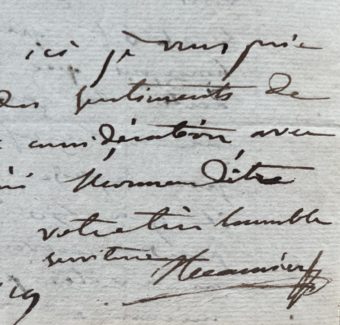 ici je vous prie
des sentiments de
considération avec
l'honneur d'être
votre très humble
serviteur Récamier